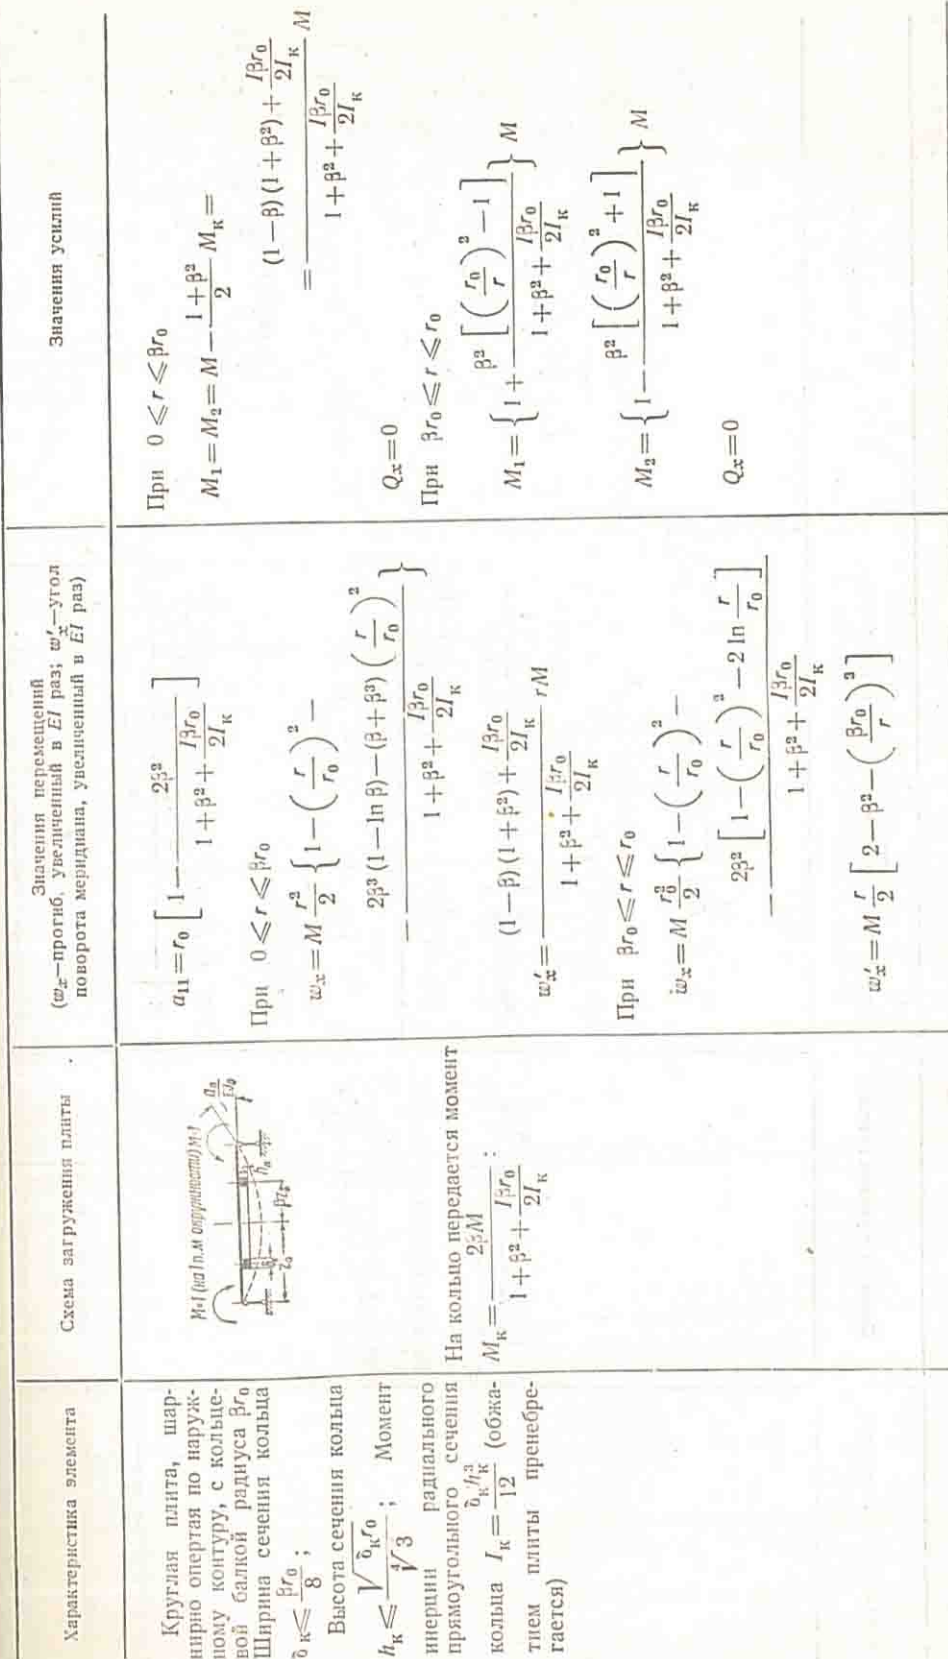 Характеристика элемента
Схема загружения плиты
Значения перемещений
(wₓ—прогиб, увеличенный в EI раз; w′ₓ—угол
поворота меридиана, увеличенный в EI раз)
Значения усилий
Круглая плита, шар-
нирно опертая по наруж-
ному контуру, с кольце-
вой балкой радиуса βr₀
Ширина сечения кольца
δ_к ⩽ βr₀/8 ;
Высота сечения кольца
h_к ⩽ √(δ_к r₀) / ∜3 ; Момент
инерции радиального
прямоугольного сечения
кольца I_к = δ_к h_к³/12 (обжа-
тием плиты пренебре-
гается)
M=1 (на 1 п.м окружности) M=1
На кольцо передается момент
M_к = 2βM / (1 + β² + Iβr₀/2I_к) .
a₁₁ = r₀ [1 − 2β² / (1 + β² + Iβr₀/2I_к)]
При 0 ⩽ r ⩽ βr₀
wₓ = M r²/2 {1 − (r/r₀)² −
− (2β³ (1 − ln β) − (β + β³) (r/r₀)²) / (1 + β² + Iβr₀/2I_к)}
w′ₓ = ((1 − β) (1 + β²) + Iβr₀/2I_к) / (1 + β² + Iβr₀/2I_к) rM
При βr₀ ⩽ r ⩽ r₀
wₓ = M r₀²/2 {1 − (r/r₀)² −
− 2β² [1 − (r/r₀)² − 2 ln r/r₀] / (1 + β² + Iβr₀/2I_к)
w′ₓ = M r/2 [2 − β² − (βr₀/r)³]
При 0 ⩽ r ⩽ βr₀
M₁ = M₂ = M − (1 + β²)/2 M_к =
= ((1 − β) (1 + β²) + Iβr₀/2I_к) / (1 + β² + Iβr₀/2I_к) M
Qₓ = 0
При βr₀ ⩽ r ⩽ r₀
M₁ = {1 + β² [(r₀/r)² − 1] / (1 + β² + Iβr₀/2I_к)} M
M₂ = {1 − β² [(r₀/r)² + 1] / (1 + β² + Iβr₀/2I_к)} M
Qₓ = 0